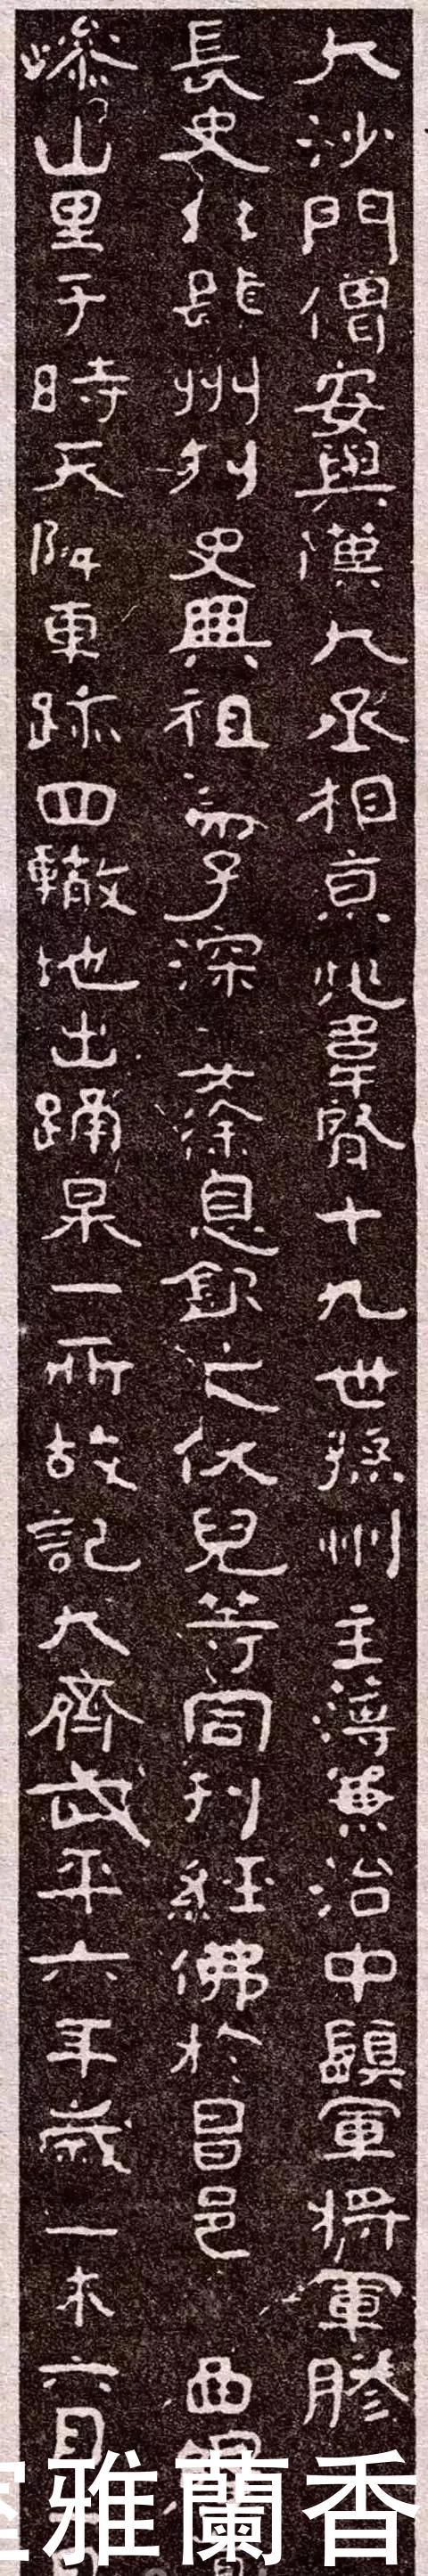 大沙門僧安與漢大丞相京兆韋賢十九世孫州主薄兼治中鎮軍將軍膠
長史行州刺史興祖弟子深妻徐息欽之伏兒等同刊經佛於昌邑西
山里于時天降車跡四轍地出踊泉一所故記大齊武平六年歲一未六月
室雅蘭香